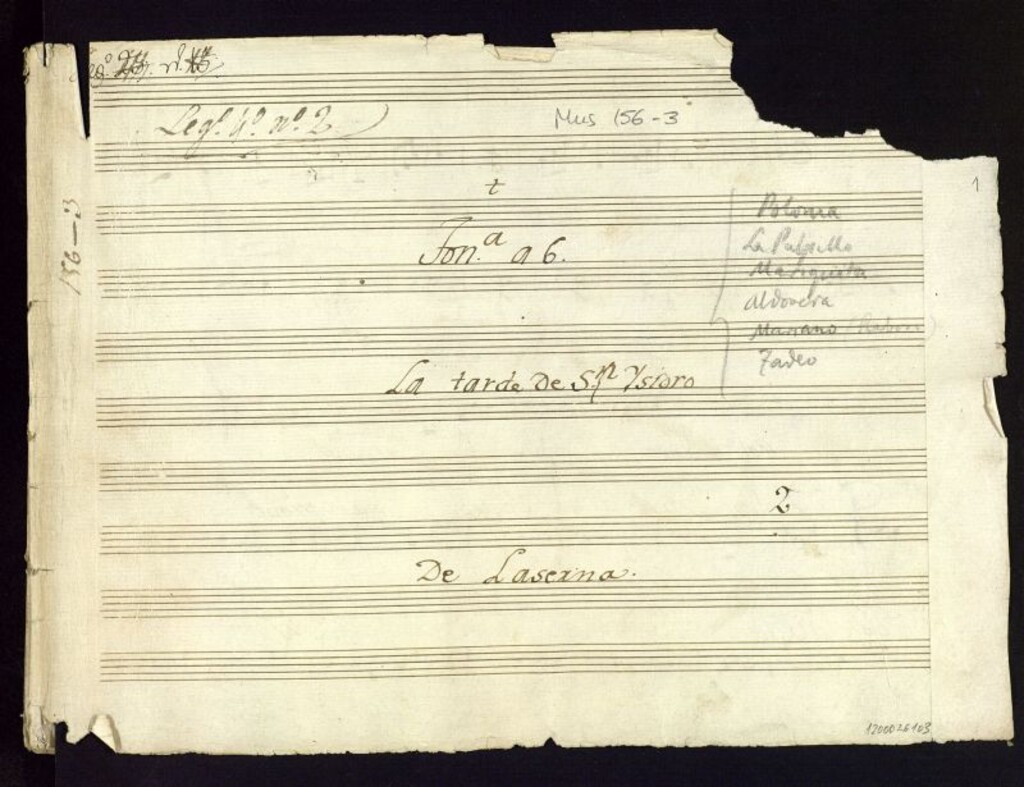 Legº. 4º. nº. 2.
Mus 156-3
1
156-3
t
Ton.ª a 6.
Polonia
La Pulpillo
Mariquita
Aldovera
Mariano
Tadeo
La tarde De S.n Ysidro
2
De Laserna.
1200026103